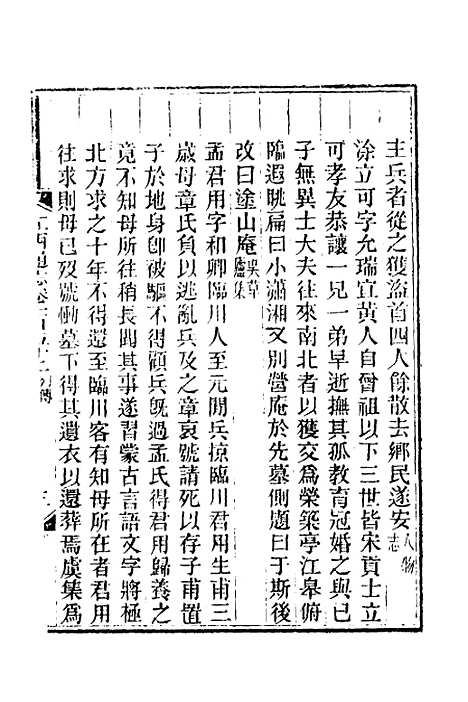 主兵者從之獲盜首四人餘散去鄉民遂安人物志
涂立可字允瑞宜黃人自曾祖以下三世皆宋貢士立
可孝友恭讓一兄一弟早逝撫其孤教育冠婚之與已
子無異士大夫往來南北者以獲交爲榮築亭江皋俯
臨遐眺扁曰小瀟湘又別營庵於先墓側題曰于斯後
改曰塗山庵吳草廬集
孟君用字和卿臨川人至元閒兵掠臨川君用生甫三
歲母章氏負以逃亂兵及之章哀號請死以存子甫置
子於地身卽被驅不得顧兵旣過孟氏得君用歸養之
竟不知母所往稍長聞其事遂習蒙古言語文字將極
北方求之十年不得還至臨川客有知母所在者君用
往求則母已歿號慟墓下得其遺衣以還葬焉虞集爲
江西通志卷一百五十二列傳 三